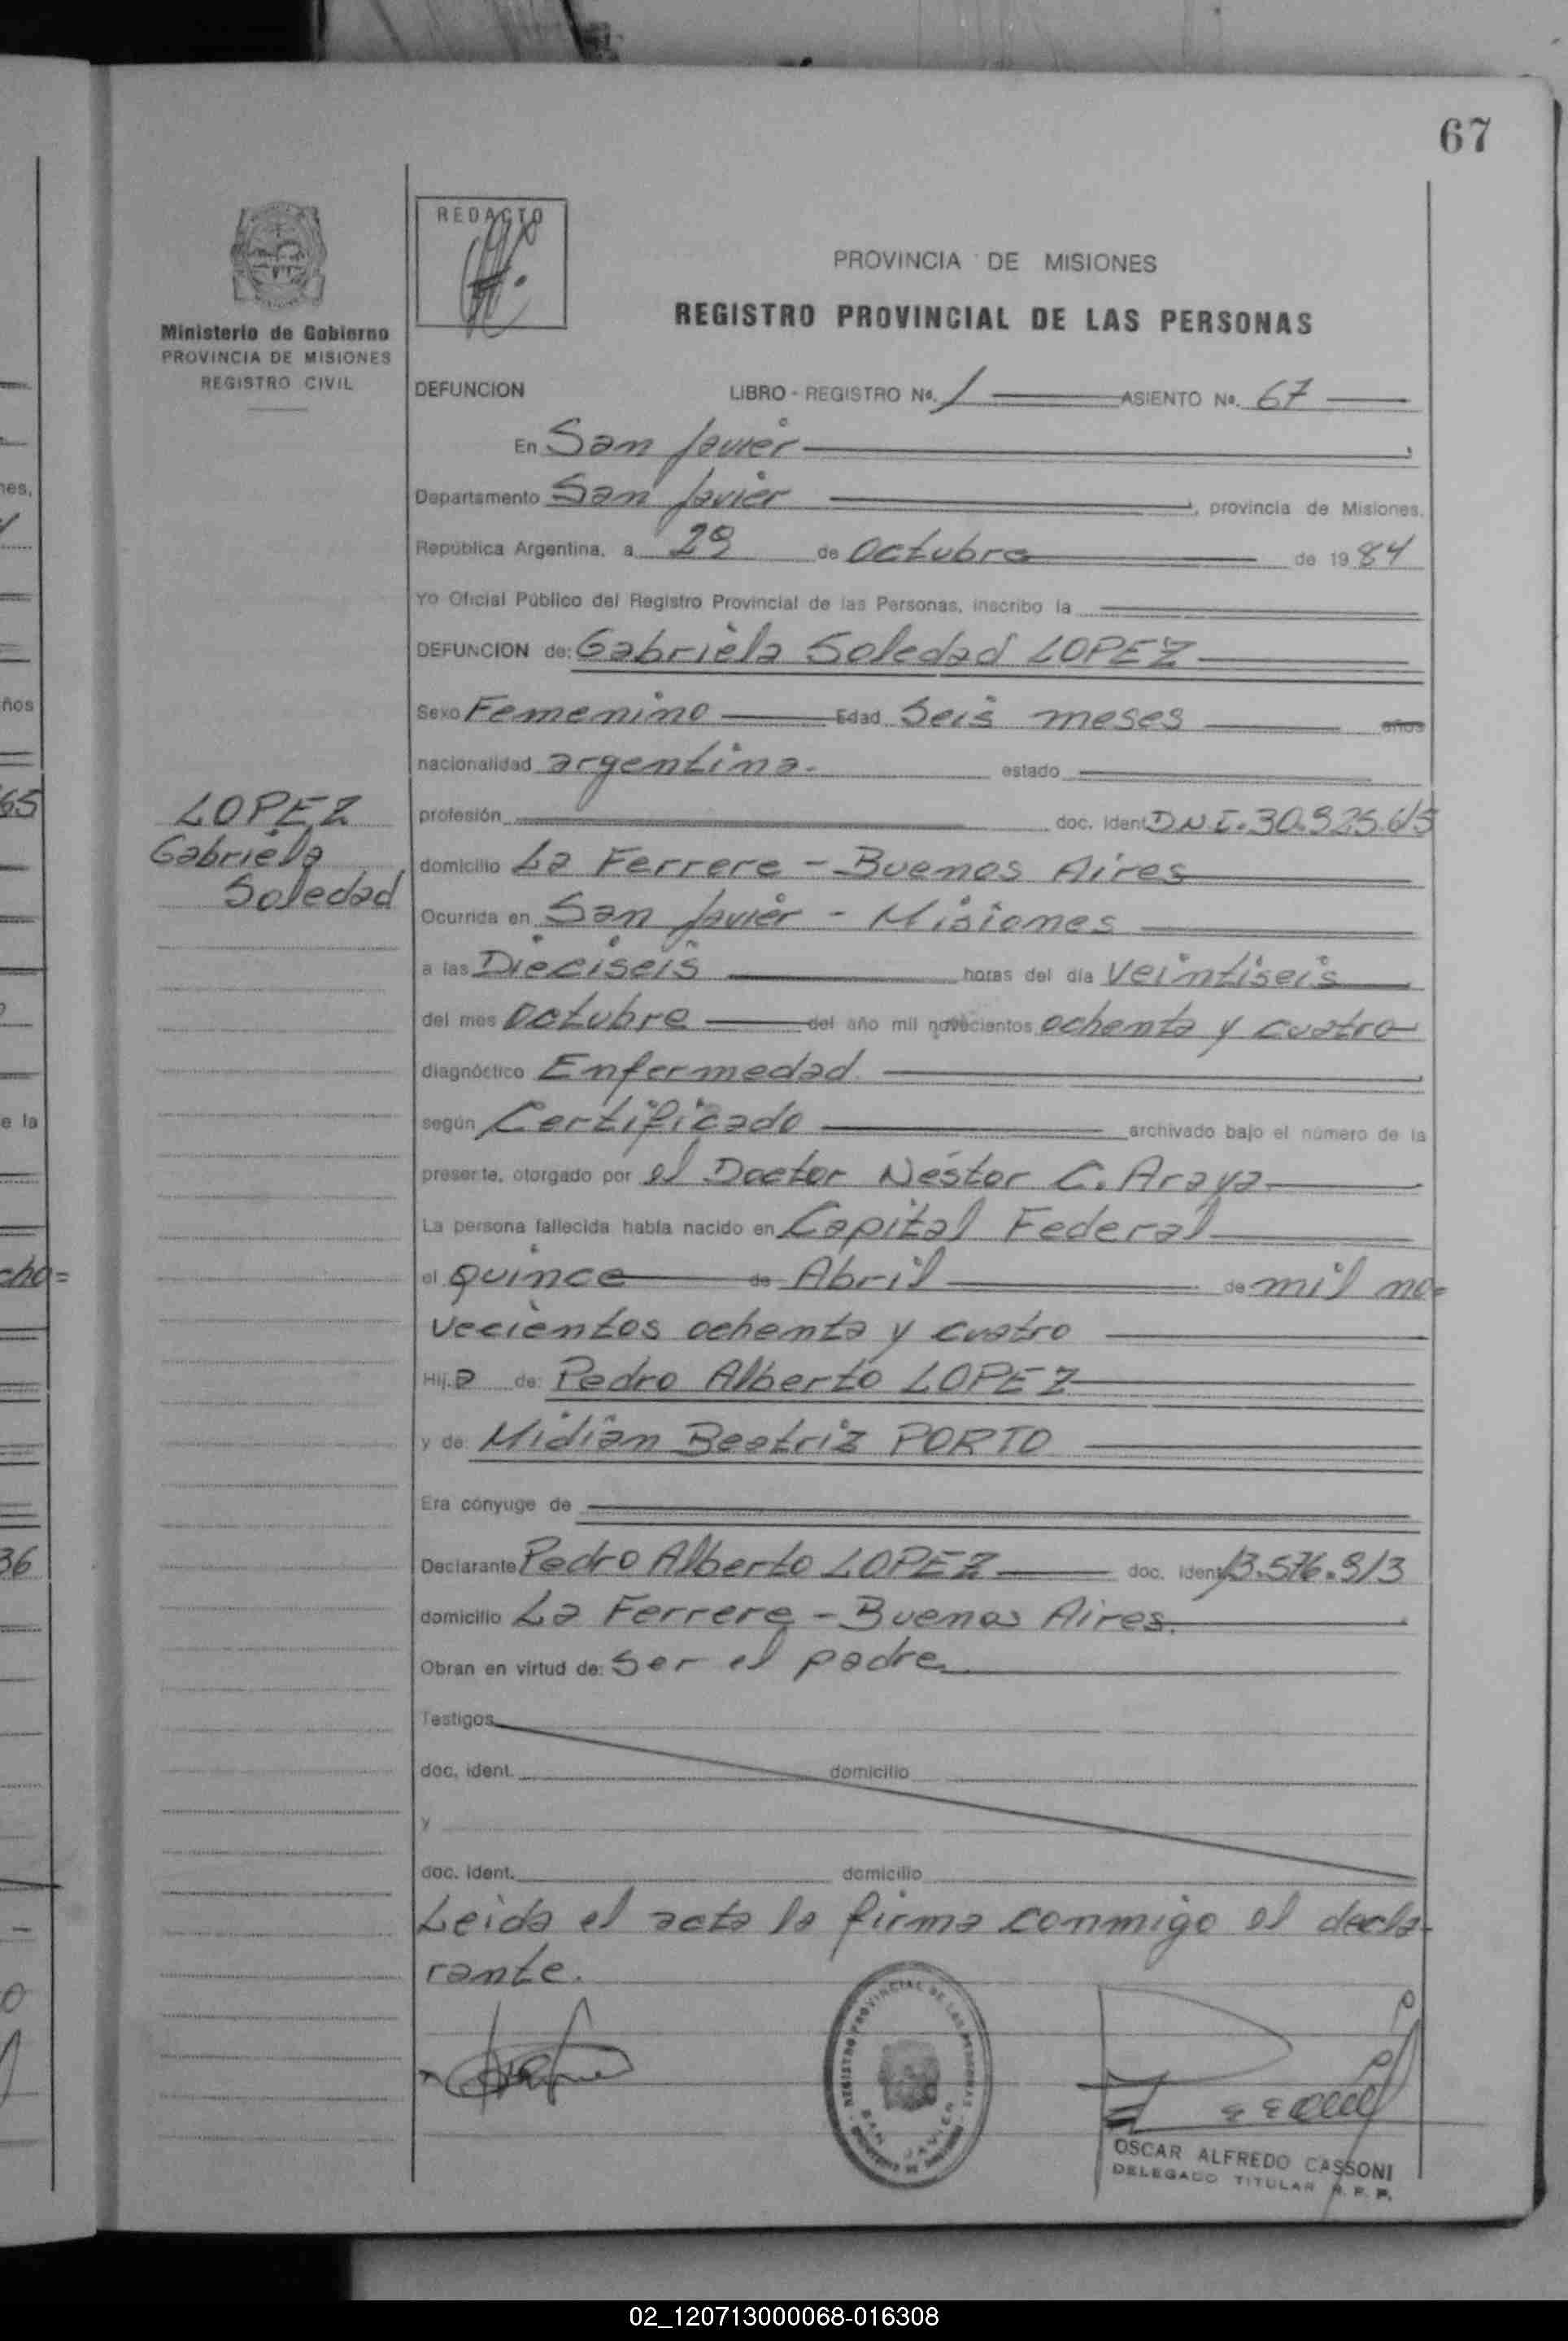 67
REDACTO
PROVINCIA DE MISIONES
REGISTRO PROVINCIAL DE LAS PERSONAS
Ministerio de Gobierno
PROVINCIA DE MISIONES
REGISTRO CIVIL
DEFUNCION LIBRO - REGISTRO Nº. 1 ASIENTO Nº. 67
En San Javier
Departamento San Javier, provincia de Misiones,
República Argentina, a 29 de octubre de 1984
Yo Oficial Público del Registro Provincial de las Personas, inscribo la
DEFUNCION de: Gabriela Soledad LOPEZ
Sexo Femenino Edad Seis meses años
nacionalidad argentina. estado
LOPEZ
Gabriela
Soledad
profesión doc. ident D.N.I. 30.925.615
domicilio La Ferrere - Buenos Aires
Ocurrida en San Javier - Misiones
a las Dieciseis horas del día veintiseis
del mes octubre del año mil novecientos ochenta y cuatro
diagnóctico Enfermedad.
según Certificado archivado bajo el número de la
presente, otorgado por el Doctor Néstor C. Araya
La persona fallecida había nacido en Capital Federal
el quince de Abril de mil no=
vecientos ochenta y cuatro
Hij.a de: Pedro Alberto LOPEZ
y de Midian Beatriz PORTO
Era cónyuge de
Declarante Pedro Alberto LOPEZ doc. ident 13.576.913
domicilio La Ferrere - Buenos Aires.
Obran en virtud de: Ser el padre
Testigos
doc. ident. domicilio
y
doc. ident. domicilio
Leida el acta la firma conmigo el decla-
rante.
REGISTRO PROVINCIAL DE LAS PERSONAS
SAN JAVIER
OSCAR ALFREDO CASSONI
DELEGADO TITULAR R. P. P.
nes,
65
ños
e la
cho=
36
02_120713000068-016308